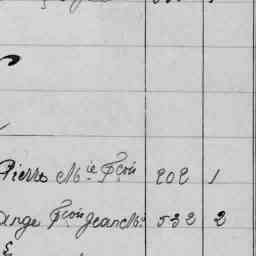 Pierre Mie Fçois 202 1
Ange Fçois Jean M. 532 2